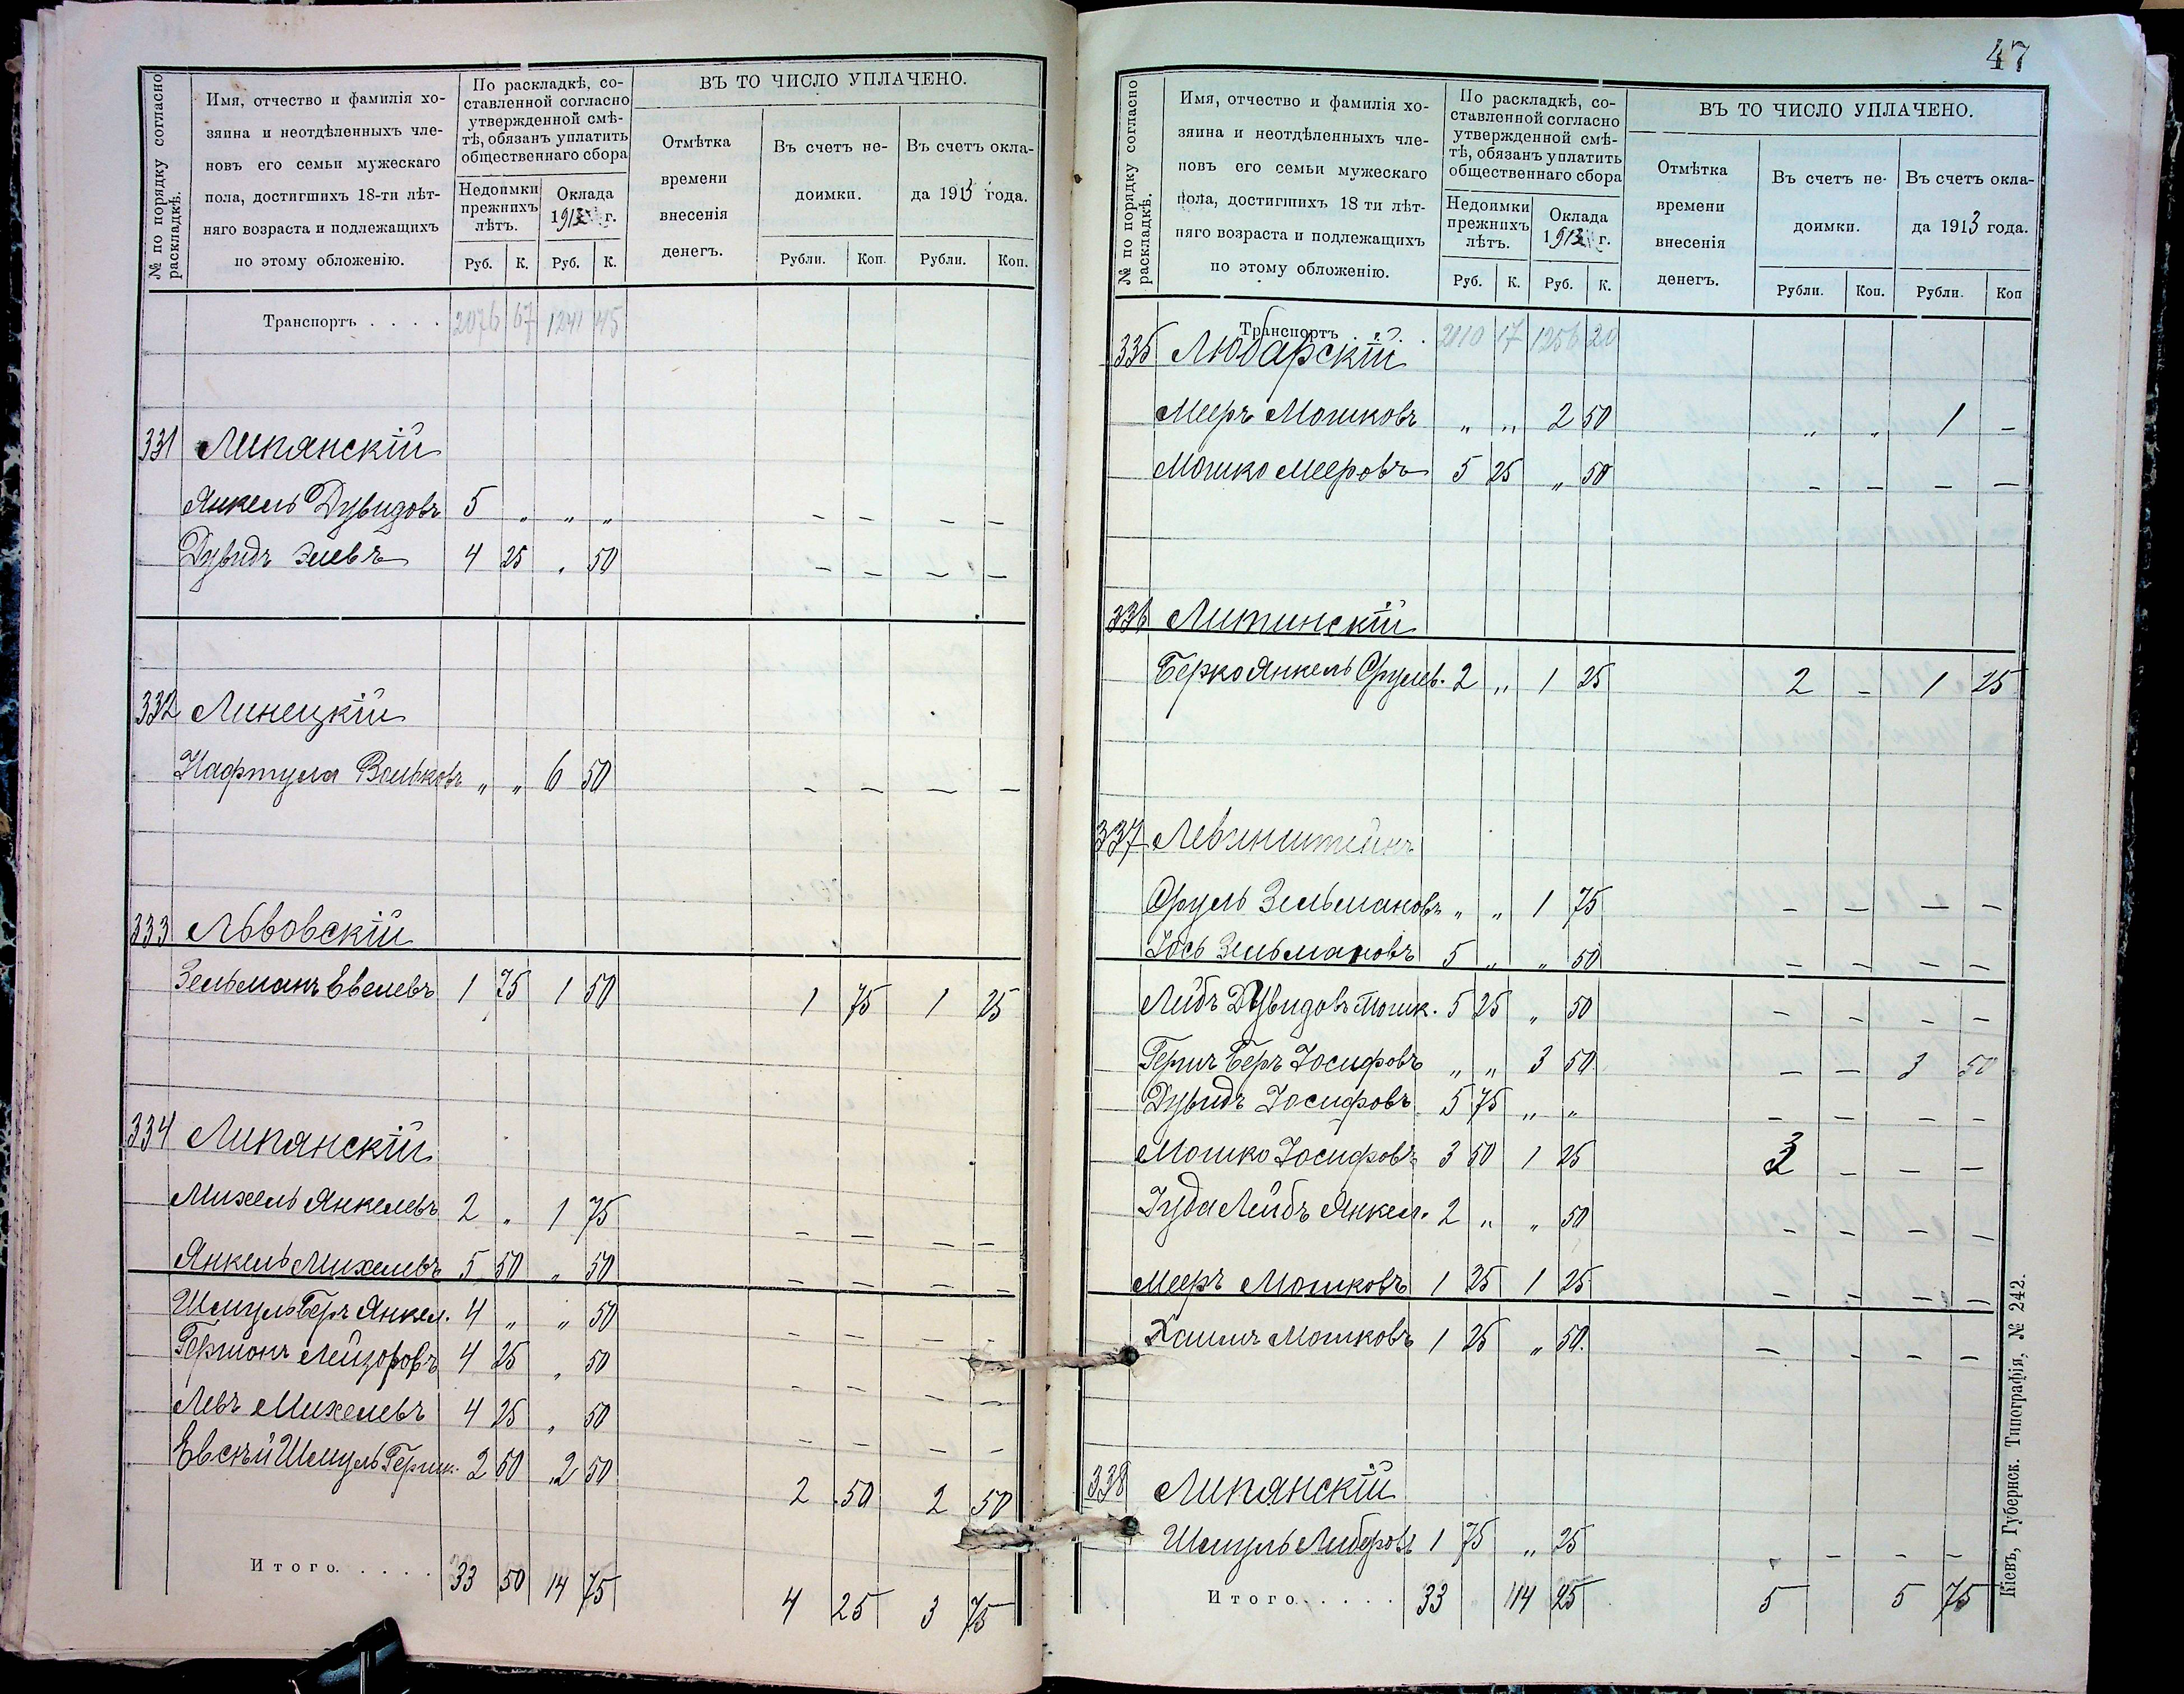 № по порядку согласно раскладкѣ.
Имя, отчество и фамилія хо-
зяина и неотдѣленныхъ чле-
новъ его семьи мужескаго
пола, достигшихъ 18-ти лѣт-
няго возраста и подлежащихъ
по этому обложенію.
По раскладкѣ, со-
ставленной согласно
утвержденной смѣ-
тѣ, обязанъ уплатить
общественнаго сбора
Недоимки прежнихъ лѣтъ.
Оклада 1913 г.
Руб. К. Руб. К.
ВЪ ТО ЧИСЛО УПЛАЧЕНО.
Отмѣтка времени внесенія денегъ.
Въ счетъ не-
доимки.
Въ счетъ окла-
да 1913 года.
Рубли. Коп. Рубли. Коп.
Транспортъ . . . . 2076 67 1241 45
331 Липянскій
Янкель Дувидовъ 5 „ „ „ — — — —
Дувидъ Элевъ 4 25 „ 50 — — — —
332 Линецкій
Нафтула Вольковъ „ „ 6 50 — — — —
333 Львовскій
Зельманъ Евелевъ 1 75 1 50 1 75 1 25
334 Липянскій
Михель Янкелевъ 2 „ 1 75 — — — —
Янкель Михелевъ 5 50 „ 50 — — — —
Шмуль Беръ Янкел. 4 „ „ 50 — — — —
Гершонъ Лейзоровъ 4 25 „ 50 — — — —
Левъ Михелевъ 4 25 „ 50 — — — —
Евсѣй Шмуль Гершк. 2 50 2 50 2 50 2 50
Итого. . . . . 33 50 14 75 4 25 3 75
47
№ по порядку согласно раскладкѣ.
Имя, отчество и фамилія хо-
зяина и неотдѣленныхъ чле-
новъ его семьи мужескаго
пола, достигшихъ 18 ти лѣт-
няго возраста и подлежащихъ
по этому обложенію.
По раскладкѣ, со-
ставленной согласно
утвержденной смѣ-
тѣ, обязанъ уплатить
общественнаго сбора
Недоимки прежнихъ лѣтъ.
Оклада 1913 г.
Руб. К. Руб. К.
ВЪ ТО ЧИСЛО УПЛАЧЕНО.
Отмѣтка времени внесенія денегъ.
Въ счетъ не-
доимки.
Въ счетъ окла-
да 1913 года.
Рубли. Коп. Рубли. Коп
Транспортъ . . . . 2110 17 1256 20
335 Любарскій
Мееръ Мошковъ „ „ 2 50 „ „ 1 —
Мошко Мееровъ 5 25 „ 50 — — — —
336 Литинскій
Берко Янкель Срулев. 2 „ 1 25 2 — 1 25
337 Левинштейнъ
Сруль Зельмановъ „ „ 1 75 — — — —
Іось Зельмановъ 5 „ „ 50 — — — —
Лейбъ Дувидовъ Мошк. 5 25 „ 50 — — — —
Гершъ Беръ Іосифовъ „ „ 3 50 — — 3 50
Дувидъ Іосифовъ 5 75 „ „ — — — —
Мошко Іосифовъ 3 50 1 25 3 — — —
Іуда Лейбъ Янкел. 2 „ „ 50 — — — —
Мееръ Мошковъ 1 25 1 25 — — — —
Хаимъ Мошковъ 1 25 „ 50. — — — —
338 Липянскій
Шмуль Либеровъ 1 75 „ 25 — — — —
Итого. . . . . 33 14 25 5 5 75
Кіевъ, Губернск. Типографія, № 242.